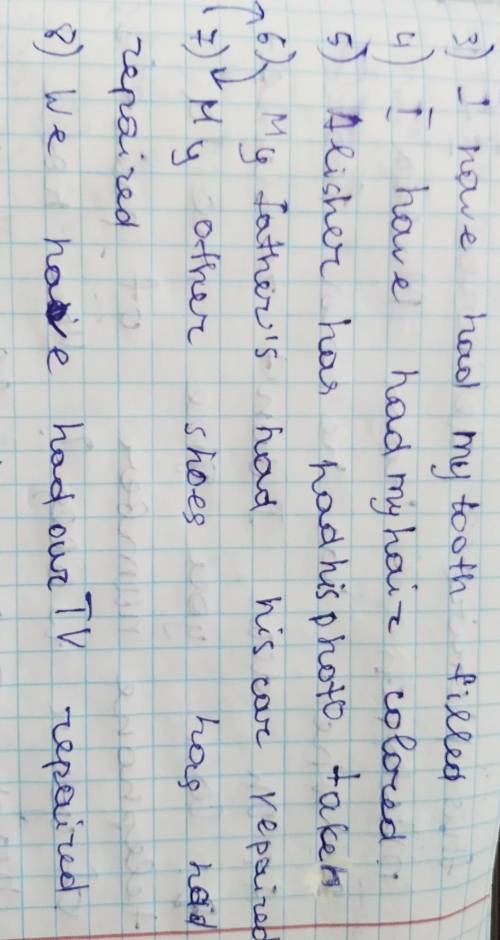 3) I have had my tooth filled
4) I have had my hair colored.
5) Alisher has had his photo taken
6) My father's had his car repaired
7) My other shoes has had
repaired
8) We have had our TV repaired